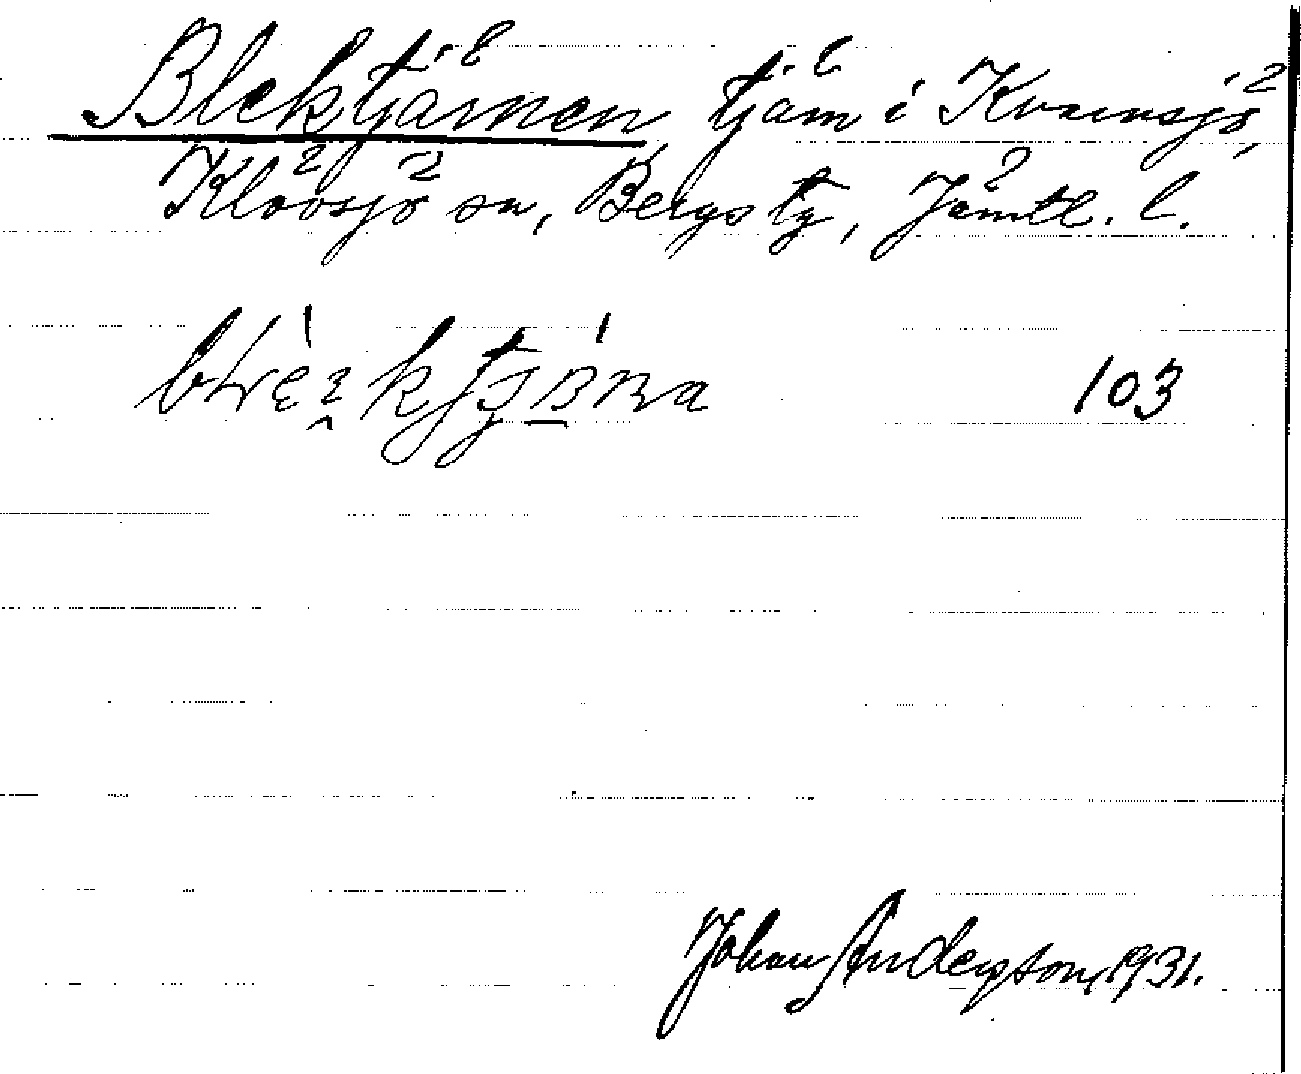 Blektjärnen, tjärn i Kvarnsjö,
Klövsjö sn, Bergs tg, Jämtl. l.
103
Johan Anderson, 1931.